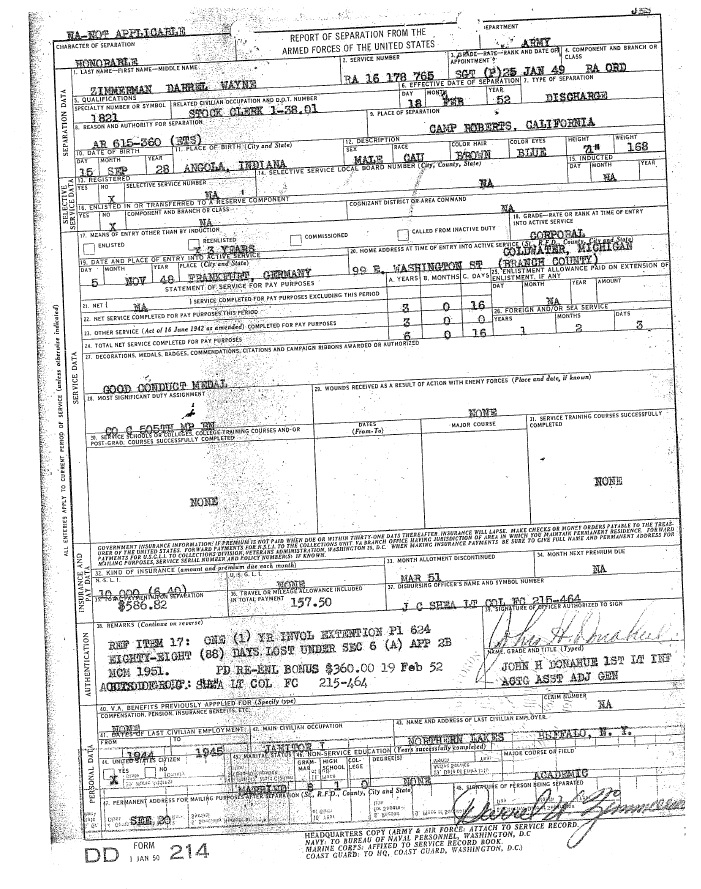 NA-NOT APPLICABLE
CHARACTER OF SEPARATION
REPORT OF SEPARATION FROM THE
ARMED FORCES OF THE UNITED STATES
DEPARTMENT
ARMY
HONORABLE
1. LAST NAME—FIRST NAME—MIDDLE NAME
ZIMMERMAN DARREL WAYNE
2. SERVICE NUMBER
RA 16 178 765
3. GRADE—RATE—RANK AND DATE OF APPOINTMENT
SGT (P) 25 JAN 49
4. COMPONENT AND BRANCH OR CLASS
RA ORD
SEPARATION DATA
5. QUALIFICATIONS
SPECIALTY NUMBER OR SYMBOL
1821
RELATED CIVILIAN OCCUPATION AND D.O.T. NUMBER
STOCK CLERK 1-38.01
6. EFFECTIVE DATE OF SEPARATION
DAY MONTH YEAR
18 FEB 52
7. TYPE OF SEPARATION
DISCHARGE
8. REASON AND AUTHORITY FOR SEPARATION
AR 615-360 (ETS)
9. PLACE OF SEPARATION
CAMP ROBERTS, CALIFORNIA
10. DATE OF BIRTH
DAY MONTH YEAR
15 SEP 28
11. PLACE OF BIRTH (City and State)
ANGOLA, INDIANA
12. DESCRIPTION
SEX RACE COLOR HAIR COLOR EYES HEIGHT WEIGHT
MALE CAU BROWN BLUE 71" 168
SELECTIVE SERVICE DATA
13. REGISTERED
YES NO
X
SELECTIVE SERVICE NUMBER
NA
14. SELECTIVE SERVICE LOCAL BOARD NUMBER (City, County, State)
NA
15. INDUCTED
DAY MONTH YEAR
NA
16. ENLISTED IN OR TRANSFERRED TO A RESERVE COMPONENT
YES NO
X
COMPONENT AND BRANCH OR CLASS
NA
COGNIZANT DISTRICT OR AREA COMMAND
NA
17. MEANS OF ENTRY OTHER THAN BY INDUCTION
ENLISTED
REENLISTED
X 3 YEARS
COMMISSIONED
CALLED FROM INACTIVE DUTY
18. GRADE—RATE OR RANK AT TIME OF ENTRY INTO ACTIVE SERVICE
CORPORAL
19. DATE AND PLACE OF ENTRY INTO ACTIVE SERVICE
DAY MONTH YEAR PLACE (City and State)
5 NOV 48 FRANKFURT, GERMANY
20. HOME ADDRESS AT TIME OF ENTRY INTO ACTIVE SERVICE (St., R.F.D., County, City and State)
99 E. WASHINGTON ST COLDWATER, MICHIGAN (BRANCH COUNTY)
ALL ENTRIES APPLY TO CURRENT PERIOD OF SERVICE (unless otherwise indicated)
SERVICE DATA
STATEMENT OF SERVICE FOR PAY PURPOSES
A. YEARS B. MONTHS C. DAYS
21. NET ( NA ) SERVICE COMPLETED FOR PAY PURPOSES EXCLUDING THIS PERIOD
3 0 16
22. NET SERVICE COMPLETED FOR PAY PURPOSES THIS PERIOD
3 0 0
23. OTHER SERVICE (Act of 16 June 1942 as amended) COMPLETED FOR PAY PURPOSES
24. TOTAL NET SERVICE COMPLETED FOR PAY PURPOSES
6 0 16
25. ENLISTMENT ALLOWANCE PAID ON EXTENSION OF ENLISTMENT, IF ANY
DAY MONTH YEAR AMOUNT
NA
26. FOREIGN AND/OR SEA SERVICE
YEARS MONTHS DAYS
1 2 3
27. DECORATIONS, MEDALS, BADGES, COMMENDATIONS, CITATIONS AND CAMPAIGN RIBBONS AWARDED OR AUTHORIZED
GOOD CONDUCT MEDAL
28. MOST SIGNIFICANT DUTY ASSIGNMENT
CO C 505TH MP BN
29. WOUNDS RECEIVED AS A RESULT OF ACTION WITH ENEMY FORCES (Place and date, if known)
NONE
30. SERVICE SCHOOLS OR COLLEGES, COLLEGE TRAINING COURSES AND/OR POST-GRAD. COURSES SUCCESSFULLY COMPLETED
NONE
DATES
(From-To)
MAJOR COURSE
31. SERVICE TRAINING COURSES SUCCESSFULLY COMPLETED
NONE
INSURANCE AND PAY DATA
GOVERNMENT INSURANCE INFORMATION: IF PREMIUM IS NOT PAID WHEN DUE OR WITHIN THIRTY-ONE DAYS THEREAFTER INSURANCE WILL LAPSE. MAKE CHECKS OR MONEY ORDERS PAYABLE TO THE TREASURER OF THE UNITED STATES. FORWARD PAYMENTS FOR N.S.L.I. TO THE COLLECTIONS UNIT VA BRANCH OFFICE HAVING JURISDICTION OF AREA IN WHICH YOU MAINTAIN PERMANENT RESIDENCE. FORWARD PAYMENTS FOR U.S.G.L.I. TO COLLECTIONS DIVISION, VETERANS ADMINISTRATION, WASHINGTON 25, D.C. WHEN MAKING INSURANCE PAYMENTS BE SURE TO GIVE FULL NAME AND PERMANENT ADDRESS FOR MAILING PURPOSES, SERVICE SERIAL NUMBER AND POLICY NUMBER(S) IF KNOWN.
32. KIND OF INSURANCE (amount and premium due each month)
N.S.L.I.
10,000 (6.40)
U.S.G.L.I.
NONE
33. MONTH ALLOTMENT DISCONTINUED
MAR 51
34. MONTH NEXT PREMIUM DUE
NA
35. TOTAL PAYMENT UPON SEPARATION
$586.82
36. TRAVEL OR MILEAGE ALLOWANCE INCLUDED IN TOTAL PAYMENT
157.50
37. DISBURSING OFFICER'S NAME AND SYMBOL NUMBER
J C SHEA LT COL FC 215-464
AUTHENTICATION
38. REMARKS (Continue on reverse)
REF ITEM 17: ONE (1) YR INVOL EXTENTION P1 624
EIGHTY-EIGHT (88) DAYS LOST UNDER SEC 6 (A) APP 2B
MCM 1951. PD RE-ENL BONUS $360.00 19 Feb 52
LT COL FC 215-464
39. SIGNATURE OF OFFICER AUTHORIZED TO SIGN
John H. Donahue
NAME, GRADE AND TITLE (Typed)
JOHN H DONAHUE 1ST LT INF
AGTG ASST ADJ GEN
PERSONAL DATA
40. V.A. BENEFITS PREVIOUSLY APPLIED FOR (Specify type)
COMPENSATION, PENSION, INSURANCE BENEFITS, ETC.
NONE
CLAIM NUMBER
NA
41. DATES OF LAST CIVILIAN EMPLOYMENT
FROM TO
1944 1945
42. MAIN CIVILIAN OCCUPATION
JANITOR I
43. NAME AND ADDRESS OF LAST CIVILIAN EMPLOYER
NORTHERN LAKES BUFFALO, N. Y.
44. UNITED STATES CITIZEN
YES NO
X
45. MARITAL STATUS
MARRIED
46. NON-SERVICE EDUCATION (Years successfully completed)
GRAMMAR HIGH SCHOOL COLLEGE DEGREE(S)
8 1 0 NONE
MAJOR COURSE OR FIELD
ACADEMIC
47. PERMANENT ADDRESS FOR MAILING PURPOSES AFTER SEPARATION (St., R.F.D., County, City and State)
SEE 20
48. SIGNATURE OF PERSON BEING SEPARATED
Darrel W Zimmerman
DD FORM 1 JAN 50 214
HEADQUARTERS COPY (ARMY & AIR FORCE: ATTACH TO SERVICE RECORD.
NAVY: TO BUREAU OF NAVAL PERSONNEL, WASHINGTON, D.C
MARINE CORPS: AFFIXED TO SERVICE RECORD BOOK.
COAST GUARD: TO HQ, COAST GUARD, WASHINGTON, D.C.)